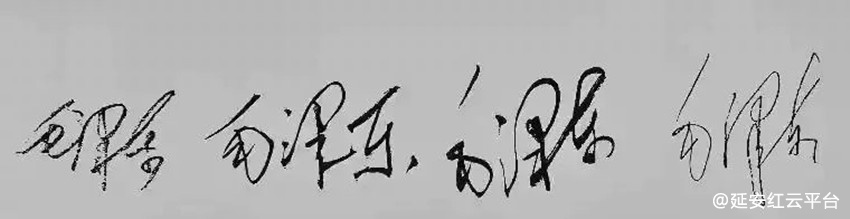 毛泽东 毛泽东 毛泽东 毛泽东
@延安红云平台